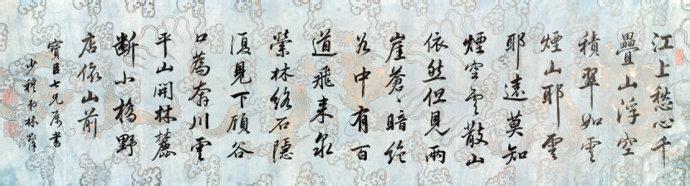 江上愁心千
疊山浮空
積翠如雲
煙山耶雲
耶遠莫知
煙空雲散山
依然但見兩
崖蒼〻暗絕
谷中有百
道飛來泉
縈林絡石隱
復見下頋谷
口為奔川雲
平山開林麓
斷小橋野
店依山前
寶臣七兄屬書
少穆弟林